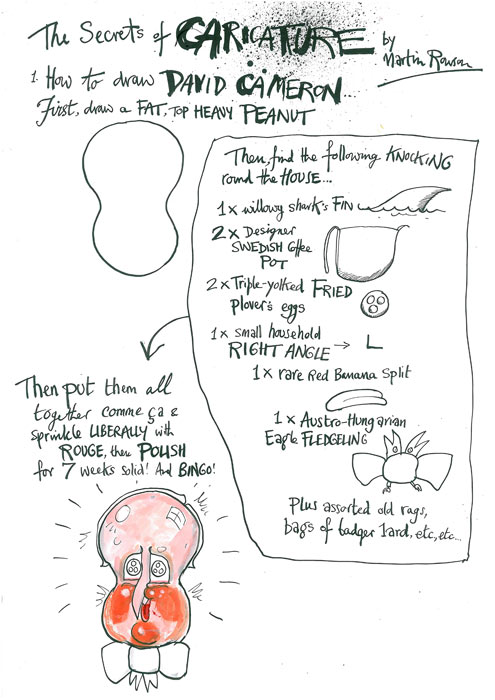 The Secrets of CARICATURE by
Martin Rowson
1. How to draw DAVID CAMERON...
First, draw a FAT, TOP HEAVY PEANUT
Then, find the following KNOCKING
round the HOUSE...
1 x willowy shark's FIN
2 x Designer
SWEDISH Coffee
POT
2 x Triple-yolked FRIED
Plover's eggs
1 x small household
RIGHT ANGLE → L
1 x rare Red Banana Split
1 x Austro-Hungarian
Eagle FLEDGELING
Plus assorted old rags,
bags of badger lard, etc, etc...
Then put them all
together comme ça &
sprinkle LIBERALLY with
ROUGE, then POLISH
for 7 weeks solid! And BINGO!